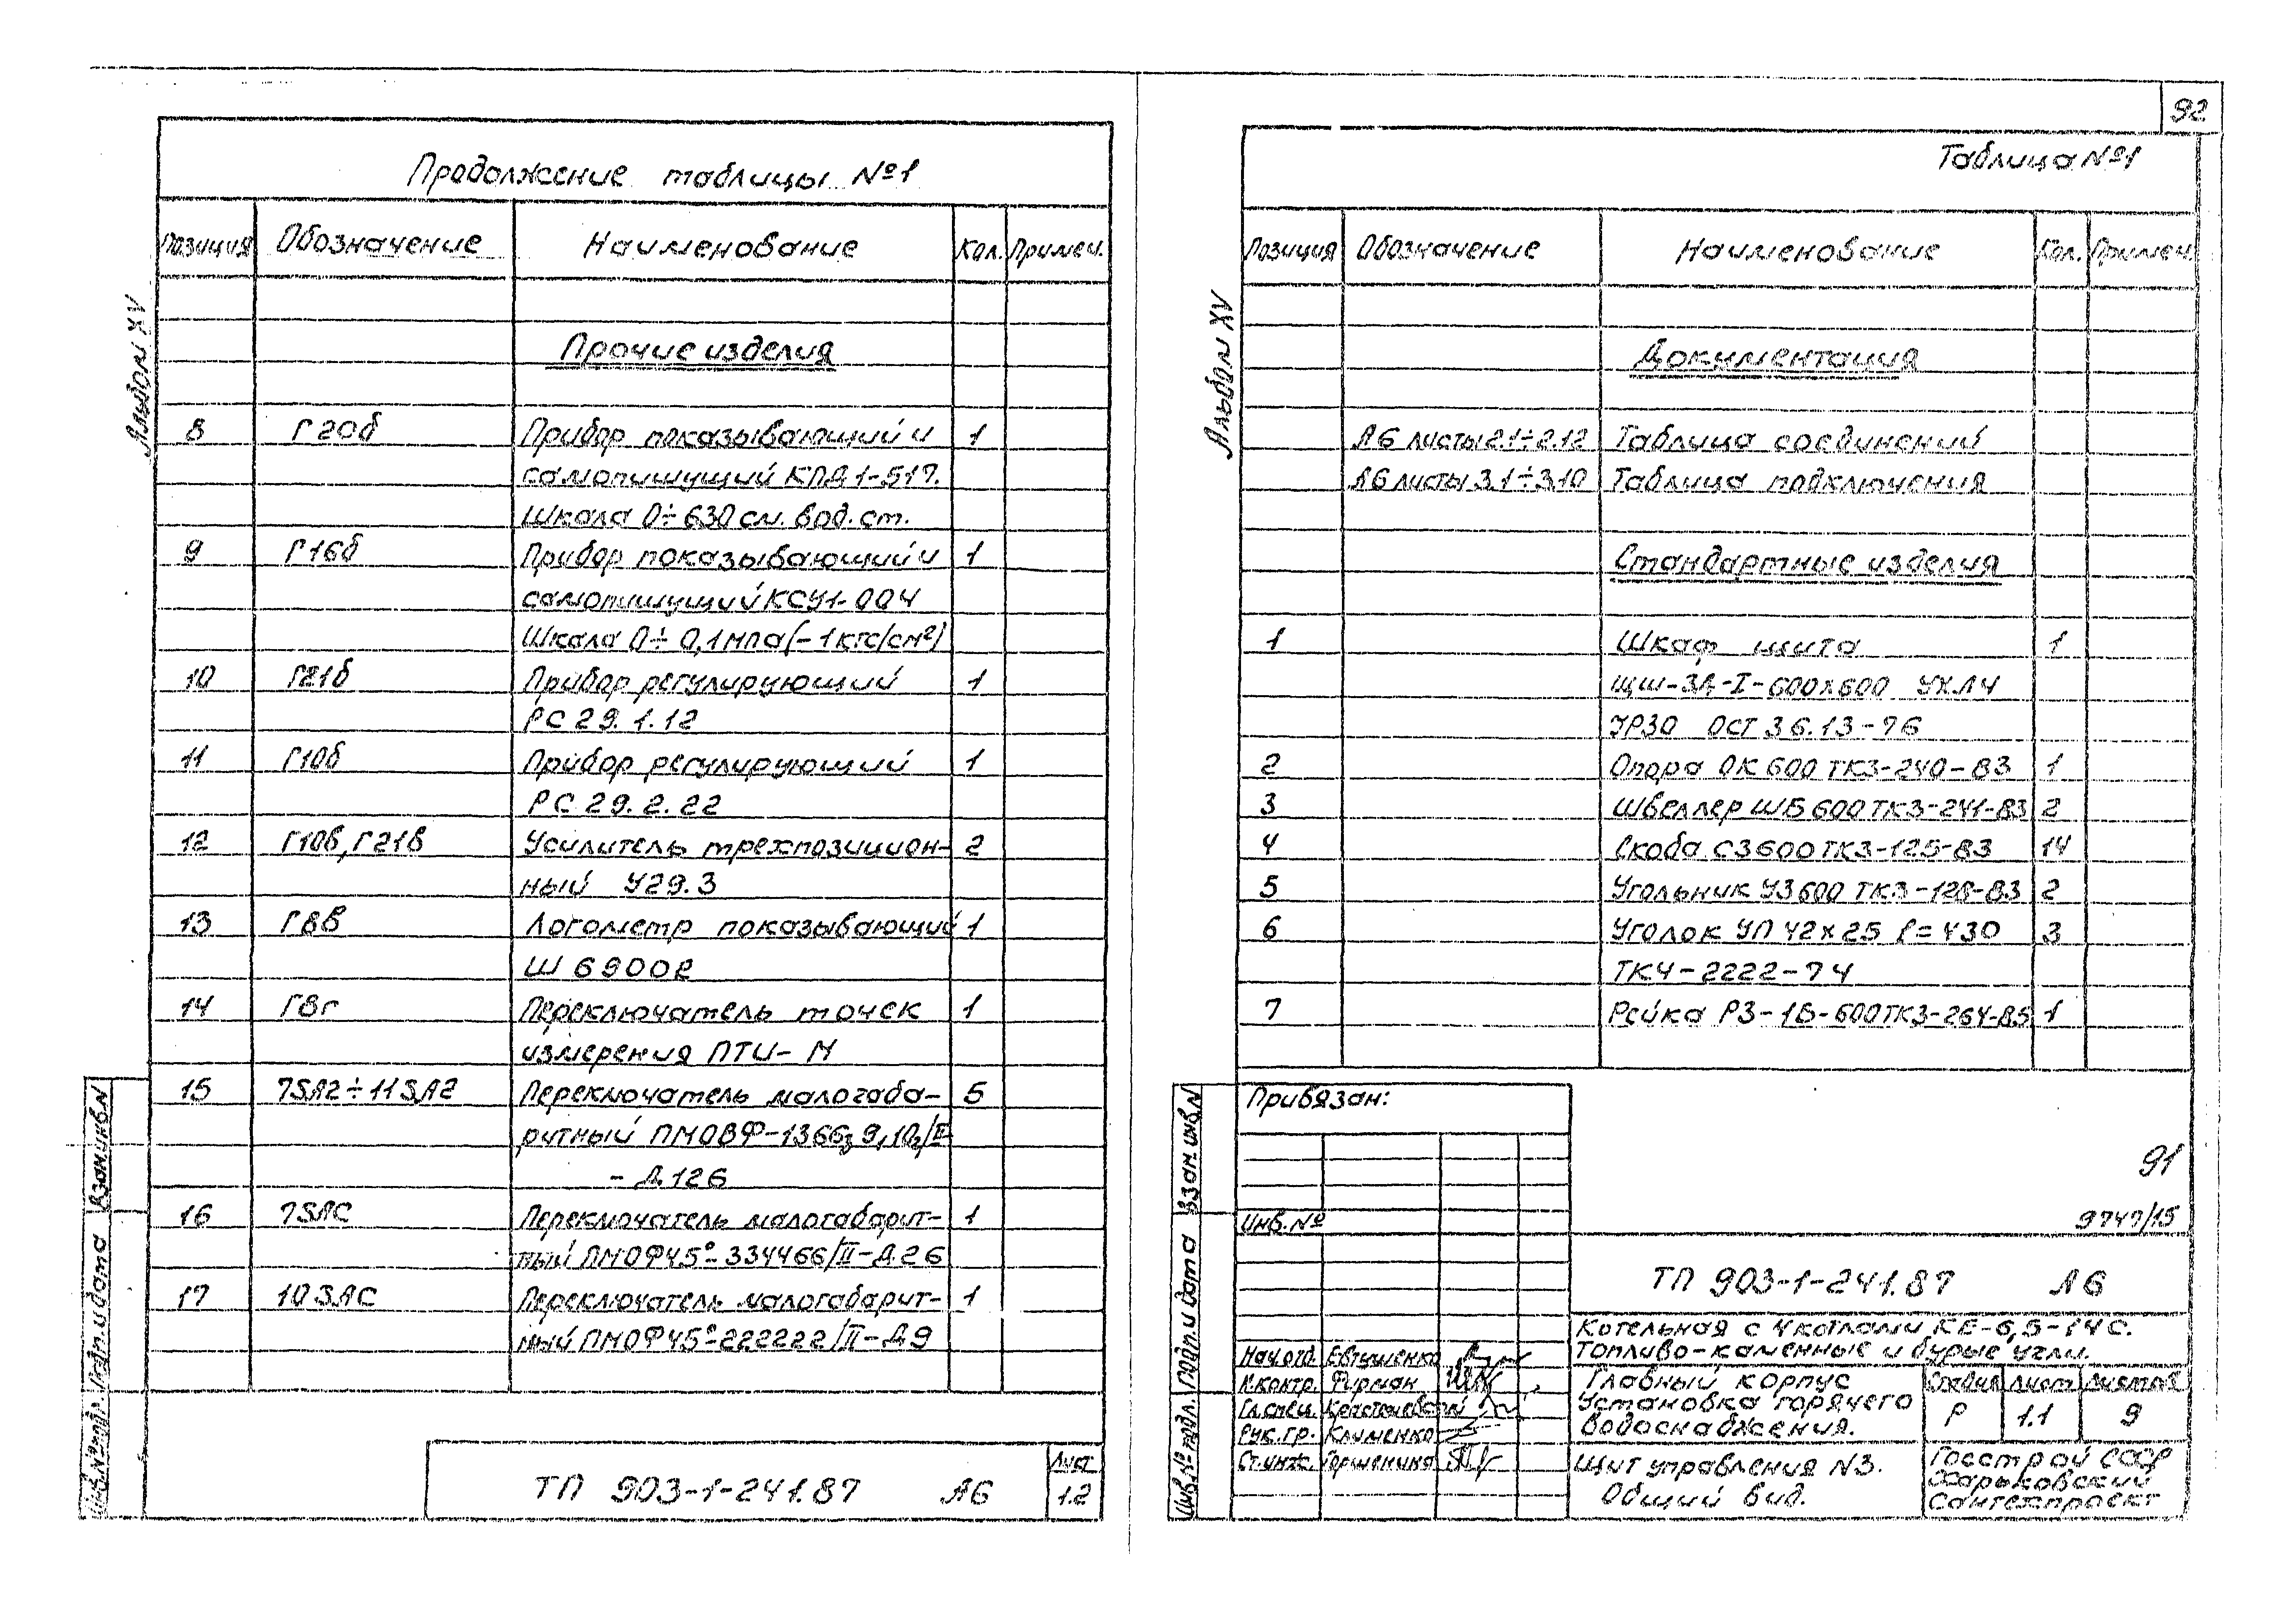 92
Продолжение таблицы №1
Позиция Обозначение Наименование Кол. Примеч.
Альбом XV
Прочие изделия
8 Г20б Прибор показывающий и 1
самопишущий КПД1-517.
Шкала 0÷630 см. вод. ст.
9 Г16б Прибор показывающий и 1
самопишущий КСУ1-004
Шкала 0÷0,1мпа(-1кгс/см²)
10 Г21б Прибор регулирующий 1
РС 29.1.12
11 Г10б Прибор регулирующий 1
РС 29.2.22
12 Г10в, Г21в Усилитель трехпозицион- 2
ный У29.3
13 Г8в Логометр показывающий 1
Ш 69002
14 Г8г Переключатель точек 1
измерения ПТИ-М
15 7SA2÷11SA2 Переключатель малогаба- 5
ритный ПМОВФ-1366
-Д126
16 7SAC Переключатель малогабарит- 1
ный ПМОФ45°-334466/II-Д26
17 10SAC Переключатель малогабарит- 1
ный ПМОФ45°-222222/II-Д9
Взам.инв.N
Подп. и дата
Инв.№подл.
ТП 903-1-241.87 А6
Лист
1.2
Таблица №1
Позиция Обозначение Наименование Кол. Примеч.
Альбом XV
Документация
А6 листы 2.1÷2.12 Таблица соединений
А6 листы 3.1÷3.10 Таблица подключения
Стандартные изделия
1 Шкаф щита 1
ЩШ-ЗД-I-600х600 УХЛ4
УР30 ОСТ 36.13-76
2 Опора ОК 600 ТК3-240-83 1
3 Швеллер ШБ 600 ТК3-241-83 2
4 Скоба СЗ 600 ТК3-125-83 14
5 Угольник УЗ 600 ТК3-128-83 2
6 Уголок УП 42х25 ℓ=430 3
ТК4-2222-74
7 Рейка РЗ-1Б-600ТК3-264-85 1
Привязан:
Инв.№
91
9747/15
Взам.инв.N
Подп. и дата
Инв.№подл.
ТП 903-1-241.87 А6
Котельная с 4 котлами КЕ-6,5-14С.
Топливо-каменные и бурые угли.
Нач.отд. Евтушенко
Н.контр. Фирман
Гл.спец.
Рук.гр. Клименко
Ст.инж.
Главный корпус
Установка горячего
водоснабжения.
Стадия Лист Листов
Р 1.1 9
Щит управления N3.
Общий вид.
Госстрой СССР
Харьковский
Сантехпроект